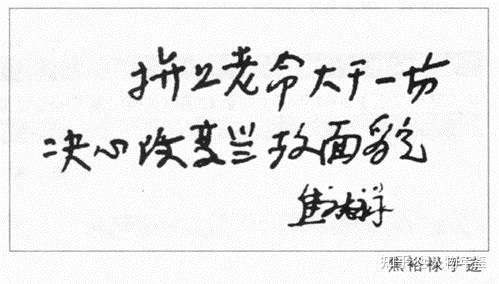 拼上老命大干一场
决心改变兰考面貌
焦裕禄
焦裕禄手迹
知乎